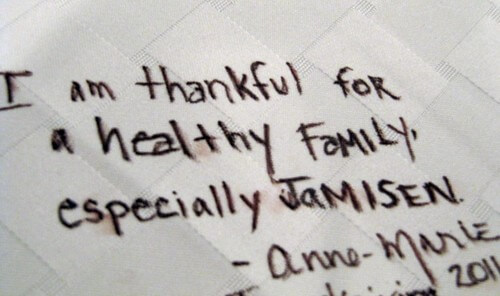 I am thankful for
a healthy FAMILY,
especially JAMISEN.
- Anne-Marie
2011